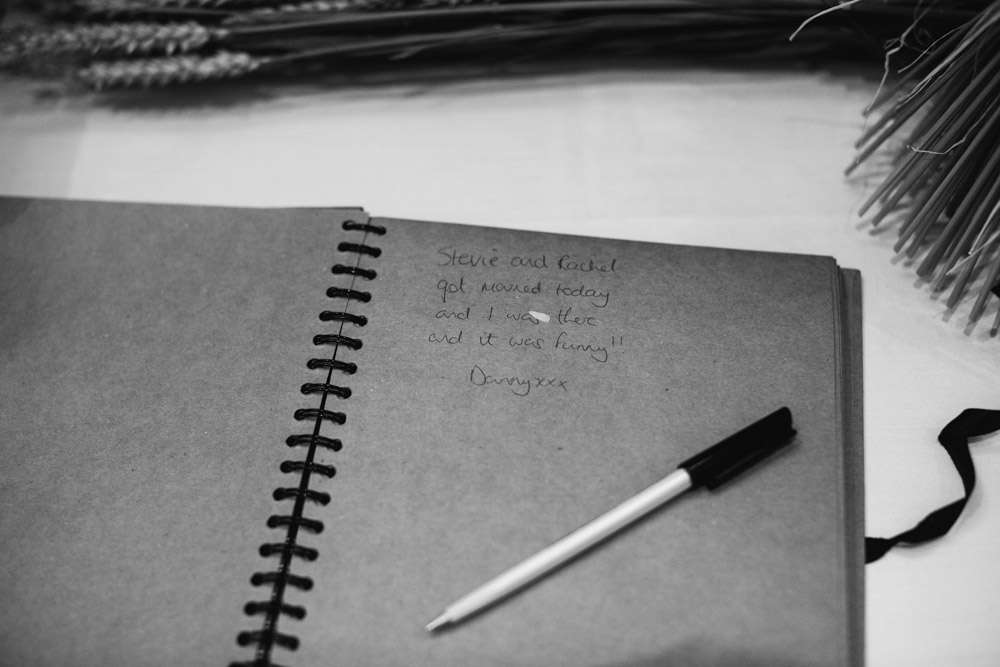 Stevie and Rachel
got married today
and I was there
and it was funny!!
Danny xxx